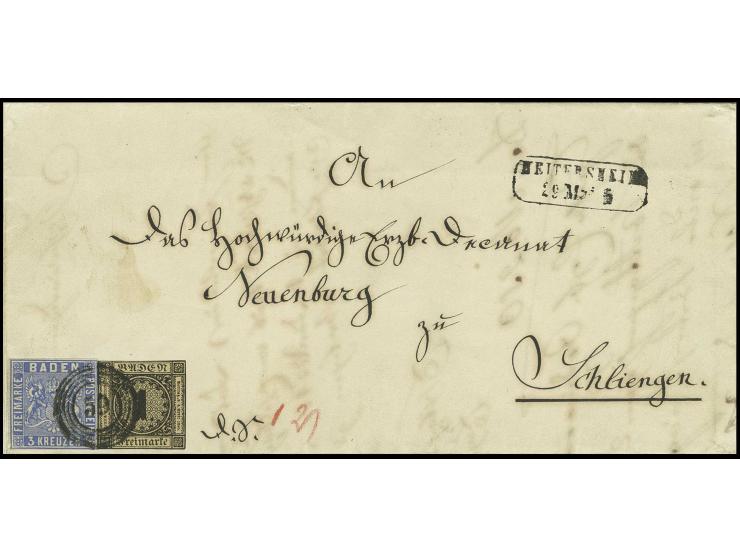 An
HEITERSHEIM
29 Mai
Das Hochwürdige Erzb. Decanat
Neuenburg
zu
Schliengen.
BADEN
FREIMARKE
3 KREUZER
BADEN
1
Freimarke
D. S.